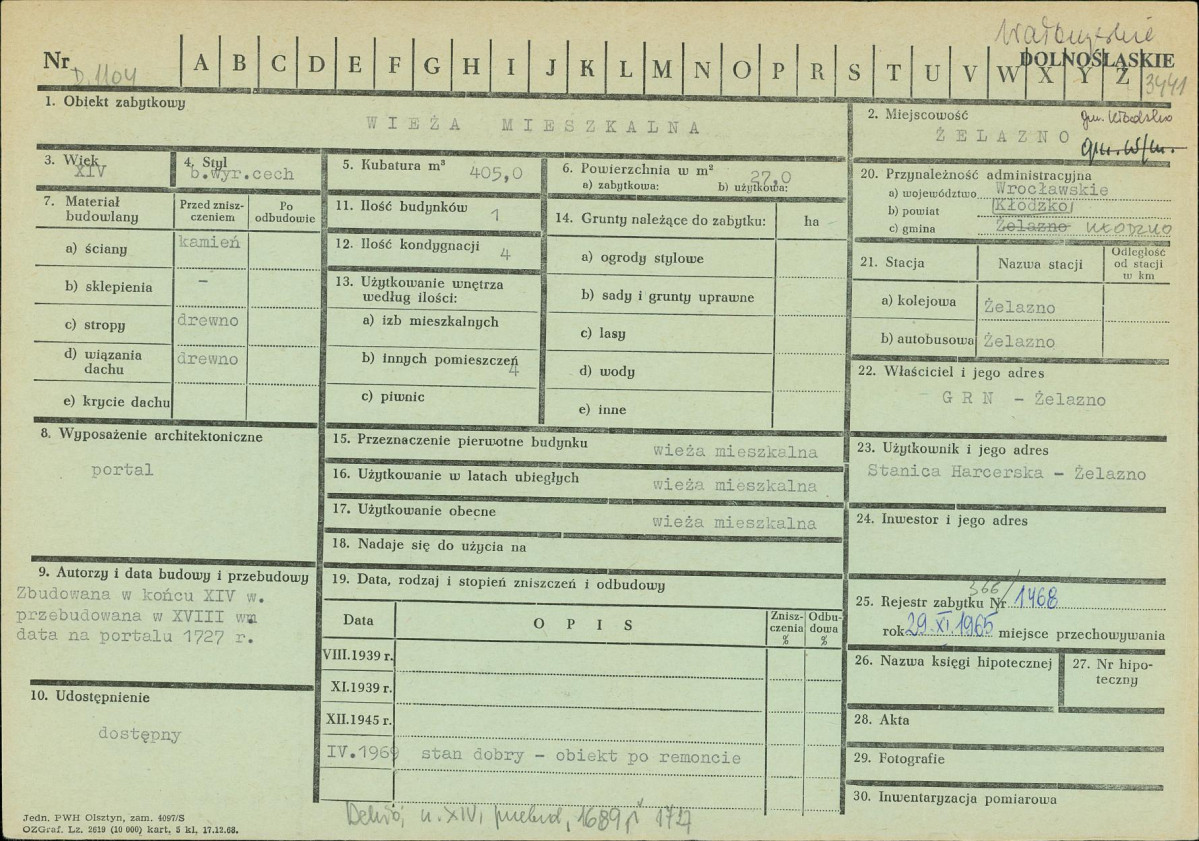 Wałbrzyskie
Nr D.1104 A B C D E F G H I J K L M N O P R S T U V W X Y Z DOLNOŚLĄSKIE
3441
1. Obiekt zabytkowy
WIEŻA MIESZKALNA
2. Miejscowość gm. Kłodzko
ŻELAZNO
3. Wiek
XIV
4. Styl
b.wyr.cech
5. Kubatura m³ 405,0
6. Powierzchnia w m² 27,0
a) zabytkowa: b) użytkowa:
7. Materiał budowlany
Przed zniszczeniem
Po odbudowie
a) ściany kamień
b) sklepienia –
c) stropy drewno
d) wiązania dachu drewno
e) krycie dachu
8. Wyposażenie architektoniczne
portal
9. Autorzy i data budowy i przebudowy
Zbudowana w końcu XIV w.
przebudowana w XVIII w
data na portalu 1727 r.
10. Udostępnienie
dostępny
11. Ilość budynków 1
12. Ilość kondygnacji 4
13. Użytkowanie wnętrza
według ilości:
a) izb mieszkalnych
b) innych pomieszczeń 4
c) piwnic
14. Grunty należące do zabytku: ha
a) ogrody stylowe
b) sady i grunty uprawne
c) lasy
d) wody
e) inne
15. Przeznaczenie pierwotne budynku wieża mieszkalna
16. Użytkowanie w latach ubiegłych wieża mieszkalna
17. Użytkowanie obecne wieża mieszkalna
18. Nadaje się do użycia na
19. Data, rodzaj i stopień zniszczeń i odbudowy
Data OPIS Zniszczenia % Odbudowa %
VIII.1939 r.
XI.1939 r.
XII.1945 r.
IV.1969 stan dobry – obiekt po remoncie
20. Przynależność administracyjna
a) województwo Wrocławskie
b) powiat Kłodzko
c) gmina Żelazno KŁODZKO
21. Stacja Nazwa stacji Odległość od stacji w km
a) kolejowa Żelazno
b) autobusowa Żelazno
22. Właściciel i jego adres
GRN – Żelazno
23. Użytkownik i jego adres
Stanica Harcerska – Żelazno
24. Inwestor i jego adres
366/
25. Rejestr zabytku Nr 1468
rok 29.XI.1965 miejsce przechowywania
26. Nazwa księgi hipotecznej
27. Nr hipoteczny
28. Akta
29. Fotografie
30. Inwentaryzacja pomiarowa
Jedn. PWH Olsztyn, zam. 4097/S
OZGraf. Lz. 2619 (10 000) kart. 5 kl. 17.12.68.
XIV, przebud. 1689 i 1727